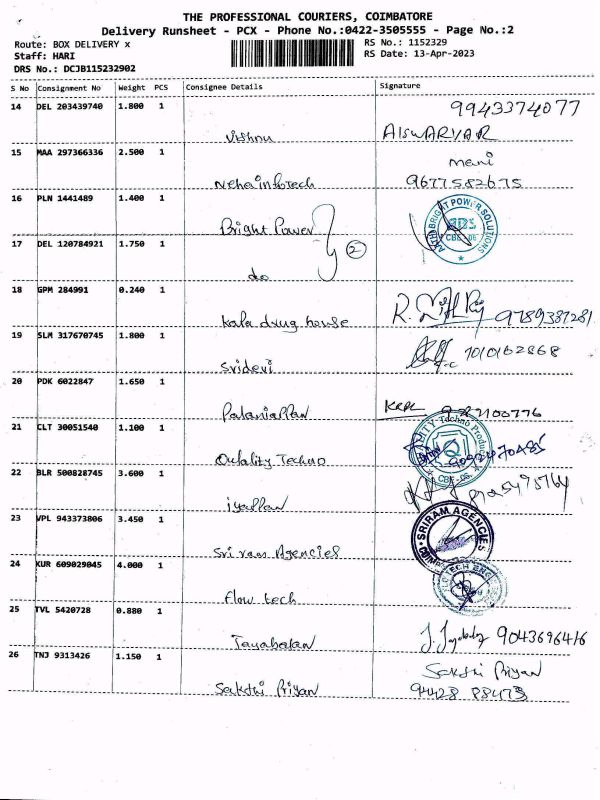 THE PROFESSIONAL COURIERS, COIMBATORE
Delivery Runsheet - PCX - Phone No.:0422-3505555 - Page No.:2
Route: BOX DELIVERY x
RS No.: 1152329
Staff: HARI
RS Date: 13-Apr-2023
DRS No.: DCJB115232902
S No Consignment No Weight PCS Consignee Details Signature
14 DEL 203439740 1.800 1
9943374077
Vishnu
AISWARYAR
15 MAA 297366336 2.500 1
mani
Nehainfotech
9677582675
16 PLN 1441489 1.400 1
Bright Power
BRIGHT POWER SOLUTIONS
BPS
17 DEL 120784921 1.750 1
2
do
18 GPM 284991 0.240 1
Kala drug house
9789387281
19 SLM 317670745 1.800 1
7010162868
Sridevi
20 PDK 6022847 1.650 1
Palaniappan
21 CLT 30051540 1.100 1
Quality Techno
CBE-06.
22 BLR 500828745 3.600 1
iyappan
23 VPL 943373806 3.450 1
SRIRAM AGENCIES
Sri ram Agencies
24 KUR 609029045 4.000 1
Flow tech
25 TVL 5420728 0.880 1
9043696416
Jayabalan
26 TNJ 9313426 1.150 1
Sakthi Priyan
Sakthi Priyan
94428 88473